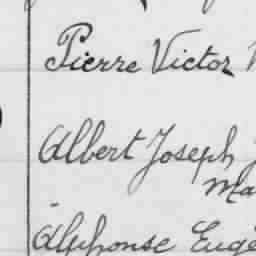 Pierre Victor
Albert Joseph
Ma
Alphonse Eugè